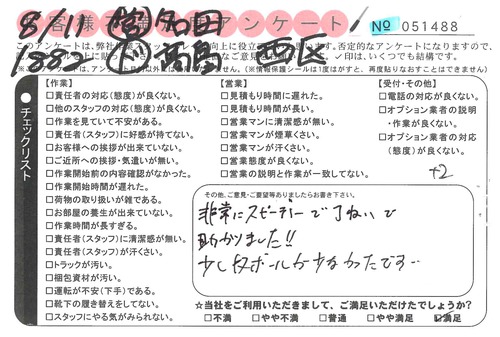 8/11 営 多田
1882 ド 高島 西区
お客様
アンケート
No 051488
チェックリスト
【作業】
□責任者の対応(態度)が良くない。
□他のスタッフの対応(態度)が良くない。
□作業を見ていて不安がある。
□責任者(スタッフ)に好感が持てない。
□お客様への挨拶が出来ていない。
□ご近所への挨拶・気遣いが無い。
□作業開始前の内容確認がなかった。
□作業開始時間が遅れた。
□荷物の取り扱いが雑である。
□お部屋の養生が出来ていない。
□作業時間が長すぎる。
□責任者(スタッフ)に清潔感が無い。
□責任者(スタッフ)が汗くさい。
□トラックが汚い。
□梱包資材が汚い。
□運転が不安(下手)である。
□靴下の履き替えをしてない。
□スタッフにやる気がみられない。
【営業】
□見積もり時間に遅れた。
□見積もり時間が長い。
□営業マンに清潔感が無い。
□営業マンが煙草くさい。
□営業マンが汗くさい。
□営業態度が良くない。
□営業の説明と作業が一致してない。
【受付・その他】
□電話の対応が良くない。
□オプション業者の説明
・作業が良くない。
□オプション業者の対応
(態度)が良くない。
+2
その他、ご意見・ご要望等ありましたらお書き下さい。
非常にスピーディーで ていねいで
助かりました!!
少し段ボールが少なかったです…
★当社をご利用いただきまして、ご満足いただけたでしょうか?
□不満 □やや不満 □普通 □やや満足 ☑満足